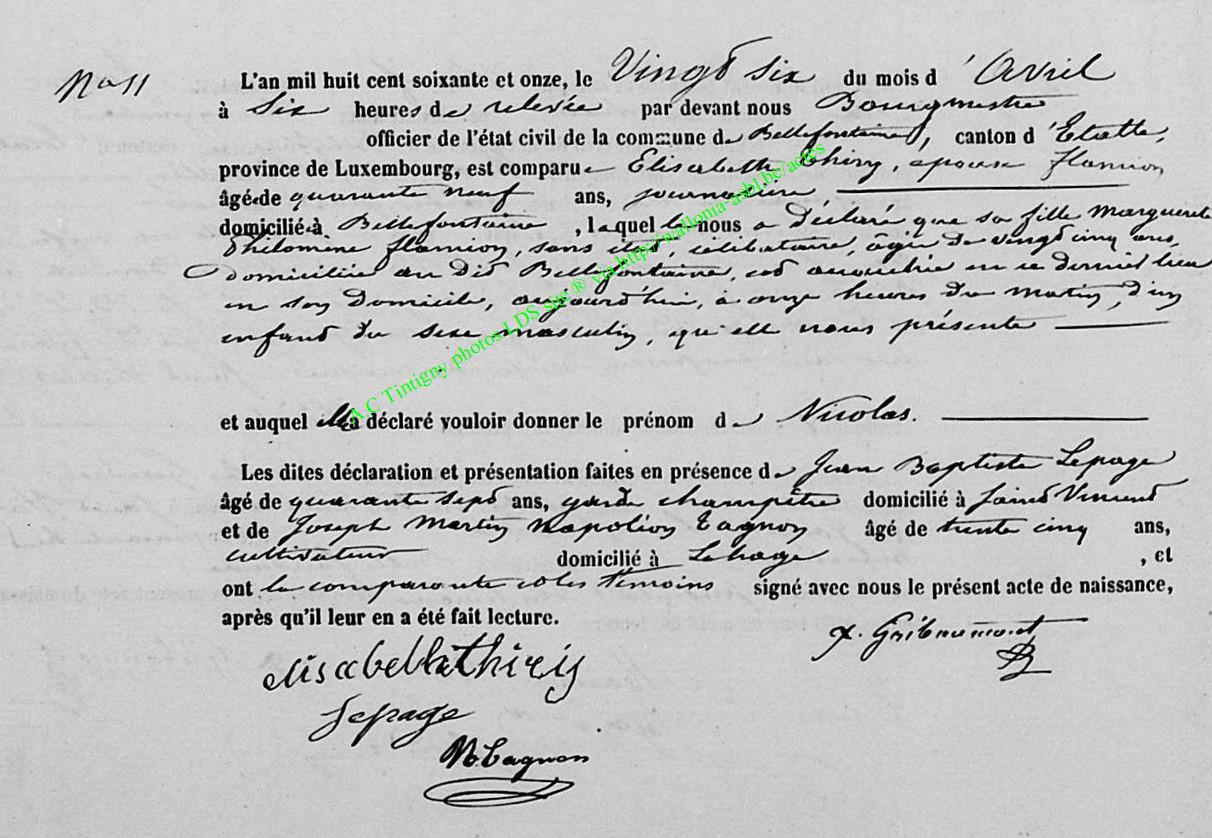 No 11
L'an mil huit cent soixante et onze, le Vingt six du mois d'Avril
à Six heures de relevée par devant nous Bourgmestre
officier de l'état civil de la commune de Bellefontaine, canton d'Etalle,
province de Luxembourg, est comparue Elisabeth Thiry, épouse Flamion
âgée de quarante neuf ans, journalière
domicilié à Bellefontaine, laquelle nous a déclaré que sa fille Marguerite
Philomène Flamion, sans état, célibataire, âgée de vingt cinq ans,
domiciliée au dit Bellefontaine, est accouchée en ce dernier lieu
en son domicile, aujourd'hui, à onze heures du matin, d'un
enfant du sexe masculin, qu'elle nous présente
et auquel elle a déclaré vouloir donner le prénom de Nicolas.
Les dites déclaration et présentation faites en présence de Jean Baptiste Lepage
âgé de quarante sept ans, garde champêtre domicilié à Saint Vincent
et de Joseph Martin Napoléon Tagnon âgé de trente cinq ans,
cultivateur domicilié à Lahage, et
ont la comparante et les témoins signé avec nous le présent acte de naissance,
après qu'il leur en a été fait lecture.
elisabethathiriy
Lepage
N. Tagnon
A.C Tintigny photos LDS site ® via http://wallonia-asbl.be/actes